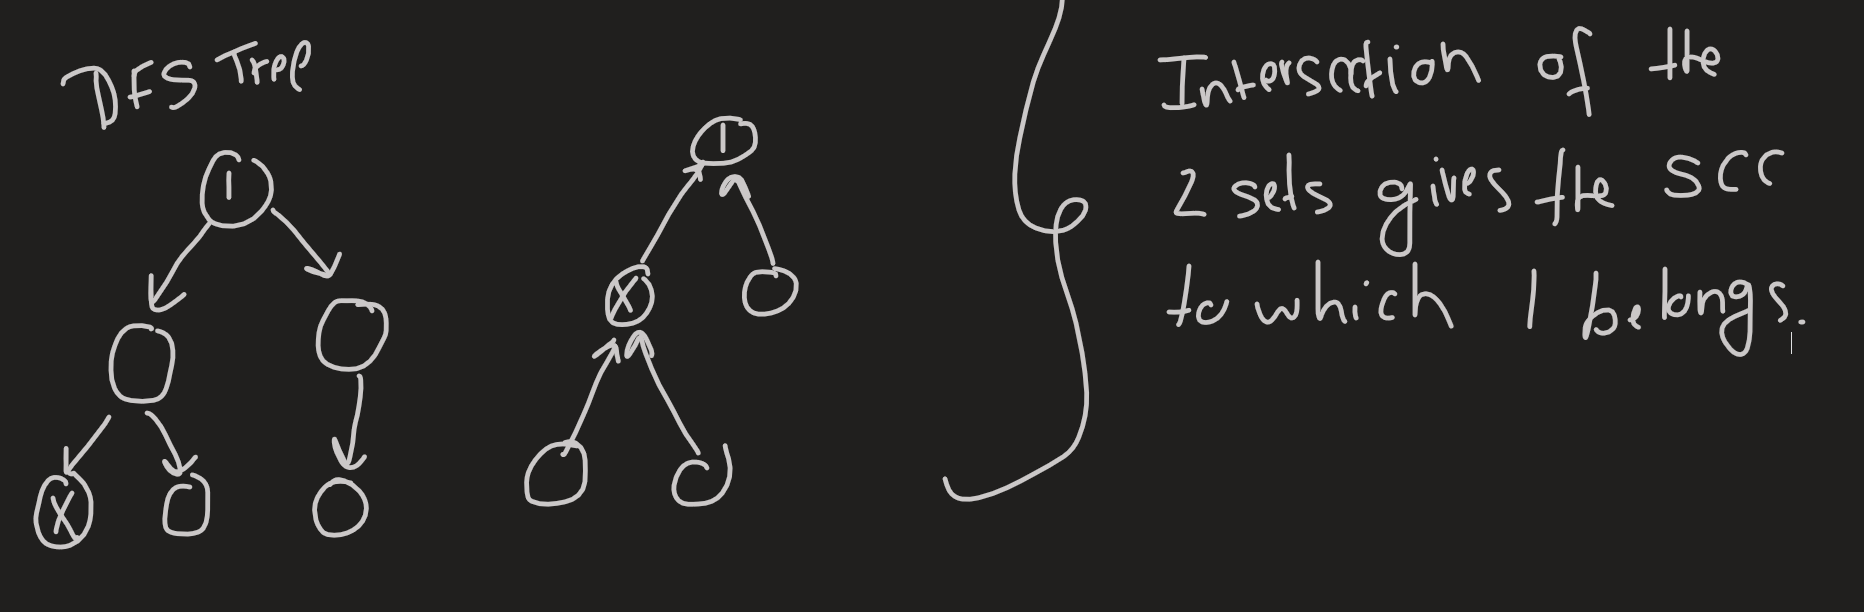 DFS Tree
1
X
1
X
Intersection of the
2 sets gives the SCC
to which 1 belongs.